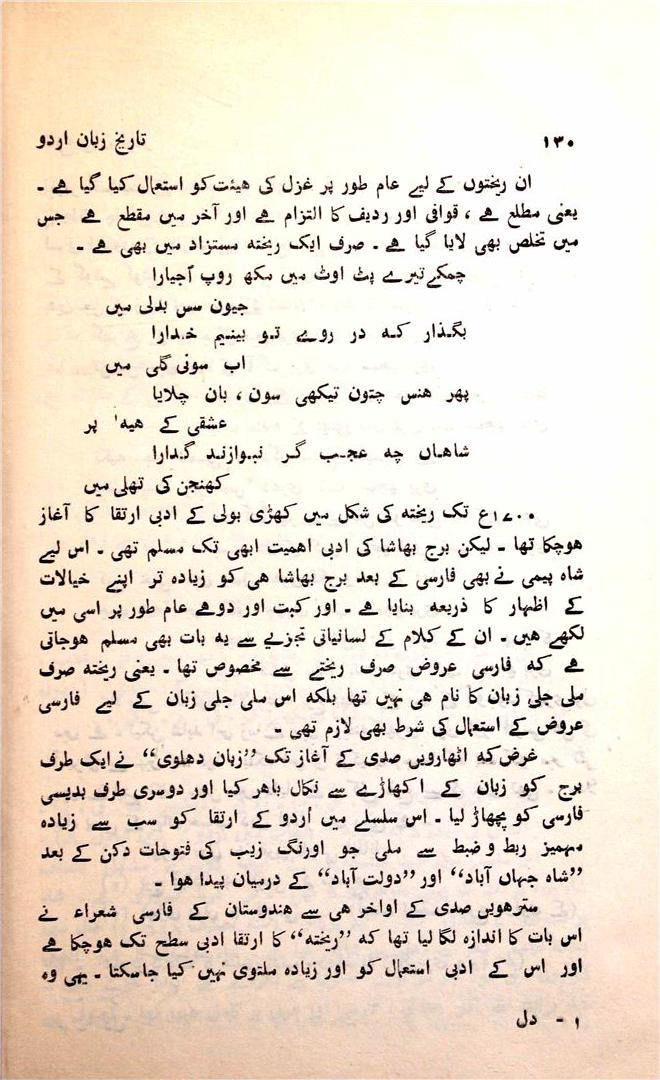 ۱۳۰ تاریخ زبان اردو
ان ریختوں کے لیے عام طور پر غزل کی ہیئت کو استعمال کیا گیا ہے ۔
یعنی مطلع ہے ، قوافی اور ردیف کا التزام ہے اور آخر میں مقطع ہے جس
میں تخلص بھی لایا گیا ہے ۔ صرف ایک ریختہ مستزاد میں بھی ہے ۔
چمکے تیرے پٹ اوٹ میں مکھ روپ اُجیارا
جیون سس بدلی میں
بگذار کہ در روے تو بینیم خدارا
اب سونی گلی میں
پھر ہنس چتون تیکھی سون ، بان چلایا
عشقی کے ہیہ' پر
شاہاں چہ عجب گر نبوازند گدارا
کھنجن کی تھلی میں
۱۷۰۰ع تک ریختہ کی شکل میں کھڑی بولی کے ادبی ارتقا کا آغاز
ہوچکا تھا ۔ لیکن برج بھاشا کی ادبی اہمیت ابھی تک مسلم تھی ۔ اس لیے
شاہ پیمی نے بھی فارسی کے بعد برج بھاشا ہی کو زیادہ تر اپنے خیالات
کے اظہار کا ذریعہ بنایا ہے ۔ اور کبت اور دوہے عام طور پر اسی میں
لکھے ہیں ۔ ان کے کلام کے لسانیاتی تجزیے سے یہ بات بھی مسلم ہوجاتی
ہے کہ فارسی عروض صرف ریختے سے مخصوص تھا ۔ یعنی ریختہ صرف
ملی جلی زبان کا نام ہی نہیں تھا بلکہ اس ملی جلی زبان کے لیے فارسی
عروض کے استعمال کی شرط بھی لازم تھی ۔
غرض کہ اٹھارویں صدی کے آغاز تک ”زبان دہلوی“ نے ایک طرف
برج کو زبان کے اکھاڑے سے نکال باہر کیا اور دوسری طرف بدیسی
فارسی کو پچھاڑ لیا ۔ اس سلسلے میں اُردو کے ارتقا کو سب سے زیادہ
مہمیز ربط و ضبط سے ملی جو اورنگ زیب کی فتوحات دکن کے بعد
”شاہ جہاں آباد“ اور ”دولت آباد“ کے درمیان پیدا ہوا ۔
سترھویں صدی کے اواخر ہی سے ہندوستان کے فارسی شعراء نے
اس بات کا اندازہ لگا لیا تھا کہ ”ریختہ“ کا ارتقا ادبی سطح تک ہوچکا ہے
اور اس کے ادبی استعمال کو اور زیادہ ملتوی نہیں کیا جاسکتا ۔ یہی وہ
۱ - دل